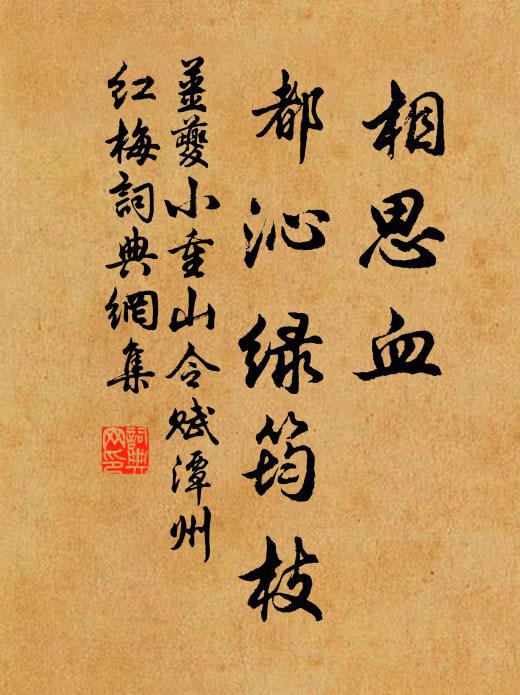 相思血
都沁绿筠枝
姜夔小重山令赋潭州
红梅词典網集
詞典网印